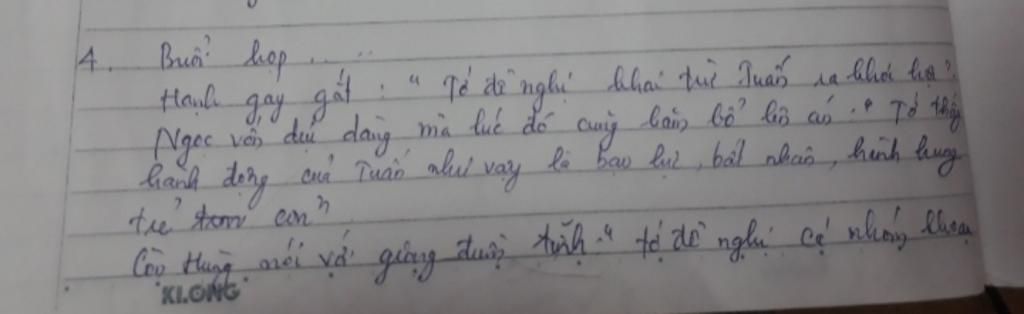 4. Buổi họp .....
Hạnh gay gắt : " Tớ đề nghị khai trừ Tuấn ra khỏi hội".
Ngọc vốn dịu dàng mà lúc đó cũng bằn bổ lên án : " Tớ thấy
hành động của Tuấn như vậy là bạo lực, bất nhân, hành hung
trẻ con"
Còn Hùng nói với giọng đượm tình " tớ đề nghị cả nhóm
KLONG